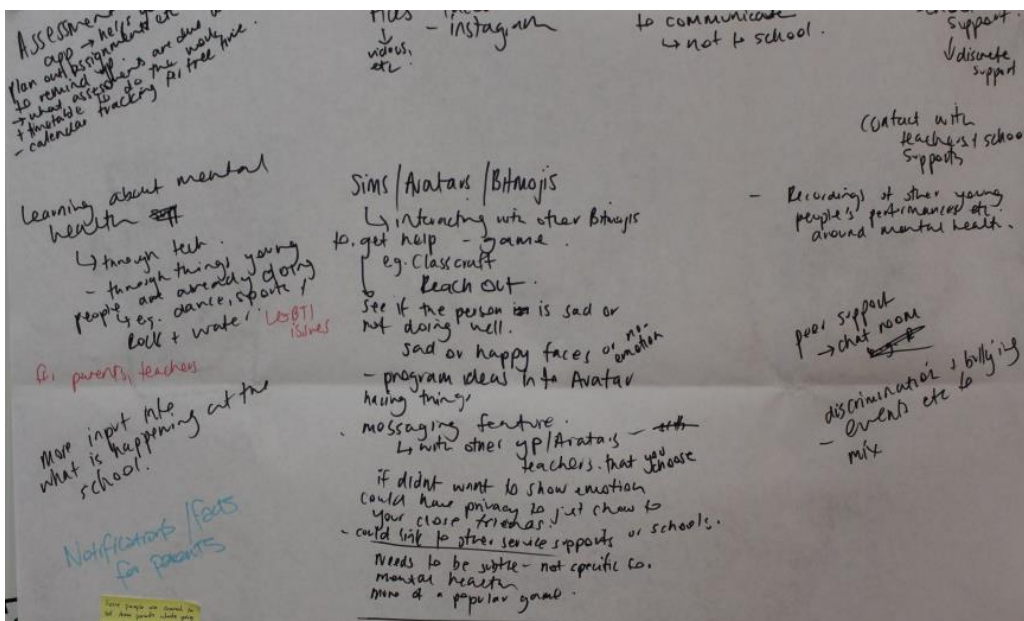 Assessment
app → helps
plan out assignments etc
to remind
→ what assessments are due
+ timetable to do the work
- calendar tracking for free time
Learning about mental
health
↳ through tech.
- through things young
people are already doing
↳ eg. dance, sports /
Rock + water
LGBTI
issues
parents, teachers
more input into
what is happening at the
school.
Notifications / facts
for parents
↓
videos,
etc.
- instagram
Sims / Avatars / Bitmojis
↳ interacting with other Bitmojis
to get help - game.
eg. Classcraft
Reach Out.
see if the person is sad or
not doing well.
sad or happy faces or no-
emotion
- program ideas into Avatar
having things
messaging feature.
↳ with other yp/Avatars -
teachers that you choose
if didnt want to show emotion
could have privacy to just show to
your close friends.
- could link to other service supports or schools.
Needs to be subtle - not specific to.
mental health
more of a popular game.
to communicate
↳ not to school.
support
↓ discrete
support
contact with
teachers + school
supports
- Recordings of other young
people's performances etc.
around mental health.
peer support
→ chat room
discrimination & bullying
- events etc to
mix